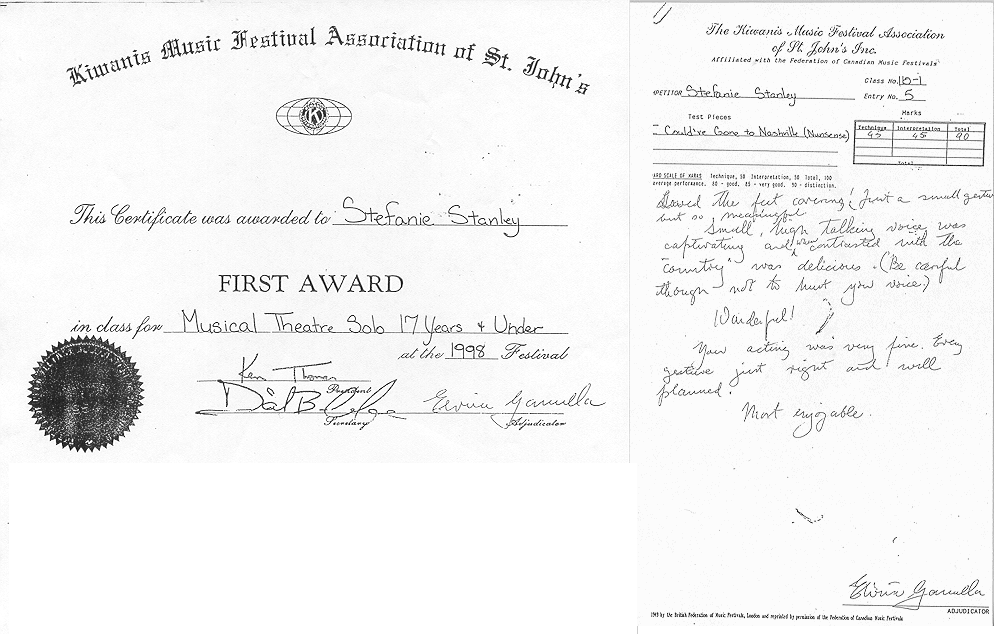 Kiwanis Music Festival Association of St. John's
K
This Certificate was awarded to Stefanie Stanley
FIRST AWARD
in class for Musical Theatre Solo 17 Years & Under
at the 1998 Festival
Ken
President
Secretary
Adjudicator
The Kiwanis Music Festival Association
of St. John's Inc.
Affiliated with the Federation of Canadian Music Festivals
Class No.
PETITOR Stefanie Stanley
Entry No. 5
Marks
Test Pieces
Could've Gone to Nashville (Nunsense)
Technique Interpretation Total
45 45 90
Total
ARD SCALE OF MARKS Technique, 50 Interpretation, 50 Total, 100
average performance. 80 - good. 85 - very good. 90 - distinction.
the feet covering! Just a small gesture
but so meaningful
Small, high talking voice was
captivating and when contrasted with the
"country" was delicious. (Be careful
though not to hurt your voice)
Wonderful!
Your acting was very fine. Every
gesture just right and well
planned.
Most enjoyable.
ADJUDICATOR
by the British Federation of Music Festivals, London and reprinted by permission of the Federation of Canadian Music Festivals